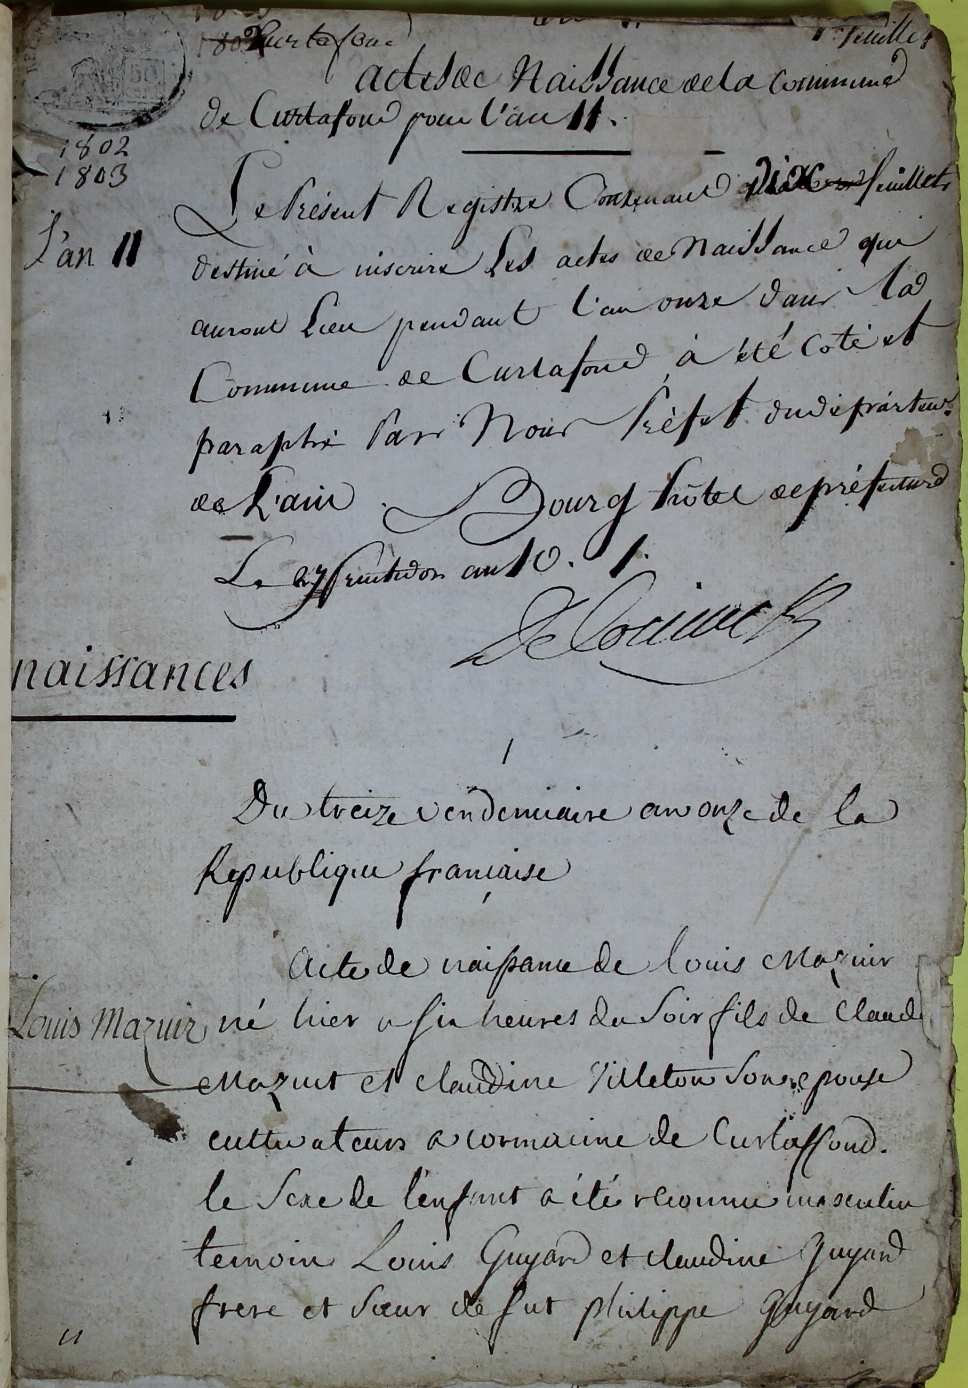 Curtafond
feuillet
actes de Naissance de la Commune
de Curtafond pour l'an 11.
1802
1803
l'an 11
Le Présent Registre Contenant dix feuillets
destiné à inscrire Les actes de Naissance qui
auront Lieu pendant l'an onze dans la
Commune de Curtafond, à été Coté et
paraphé Par Nous Préfet du départem.
de L'ain. Bourg hôtel de préfecture
Le 27 fructidor an 10.
naissances
1
Du treize vendemiaire an onze de la
Republique française
Acte de naissance de louis Mazuir
Louis Mazuir
né hier a six heures du Soir fils de Claude
Mazuit et claudine Villeton Son epouse
cultivateurs a cormacine de Curtaffond.
le Sexe de l'enfant a été reconnu masculin
temoin Louis Guyard et claudine Guyard
frere et Sœur de fut philippe Guyard